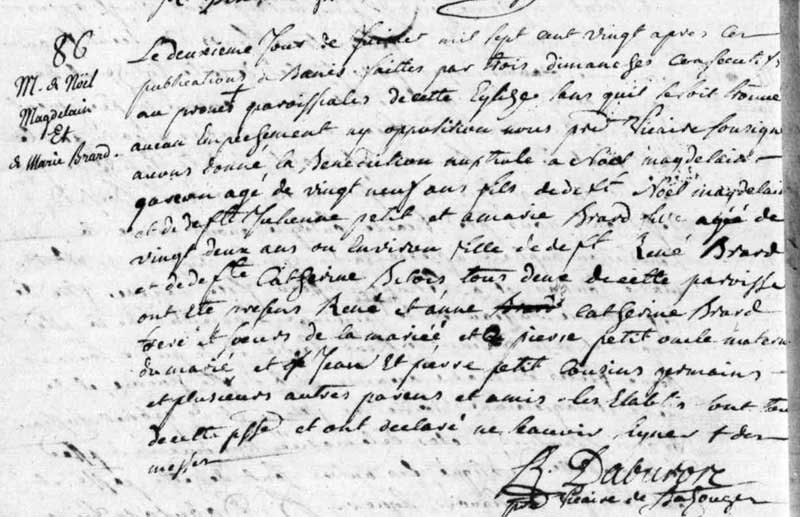 86
M. de Noël
Magdelain
Et
de Marie Brard.
Le deuxieme Jour de mil sept cent vingt apres
publications de Banis faittes par trois dimanches Consecutifs
au prones paroissiales decette Eglise sans quil se soit trouvé
aucun Empeschement ny opposition nous pred Vicaire sousign
avons donné la Benediction nuptiale a Noël magdelain
garcon agé de vingt neuf ans fils dedeft Noël magdelain
et dedefte Julienne petit et a marie Brard agée de
vingt deux ans ou Environ fille dedeft René Brard
et dedefte Catherine Betois tous deux decette paroisse
ont été presens René et anne Catherine Brard
frere et soeurs de la mariée et pierre petit oncle matern
du marié et Jean Et pierre petit Cousins germains
et plusieurs autres parens et amis les Etabls sont tous
decette psse et ont declaré ne scavoir signer
messes
R. Daburon
pred Vicaire de Bazouges